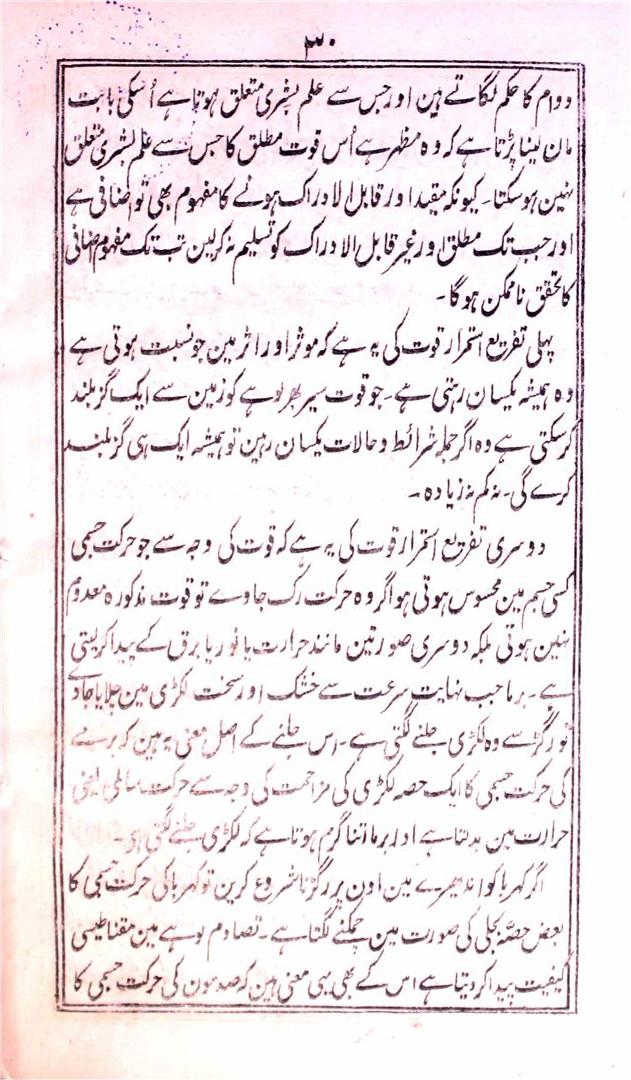 ۳۰
دوام کا حکم لگاتے ہین اور جس سے علم بشری متعلق ہوتا ہے اُسکی بابت
مان لینا پڑتا ہے کہ وہ مظہر ہے اُس قوت مطلق کا جس سے علم بشری متعلق
نہین ہو سکتا۔ کیونکہ مقید اور قابل الادراک ہونے کا مفہوم بھی تو اضافی ہے
اور جب تک مطلق اور غیر قابل الادراک کو تسلیم نہ کر لین تب تک مفہوم اضافی
کا تحقق ناممکن ہو گا۔
پہلی تفریع استمرار قوت کی یہ ہے کہ موثر اور اثر مین جو نسبت ہوتی ہے
وہ ہمیشہ یکسان رہتی ہے۔ جو قوت سیر بھر لوہے کو زمین سے ایک گز بلند
کر سکتی ہے وہ اگر جملہ شرائط و حالات یکسان رہین تو ہمیشہ ایک ہی گز بلند
کرے گی۔ نہ کم نہ زیادہ۔
دوسری تفریع استمرار قوت کی یہ ہے کہ قوت کی وجہ سے جو حرکت جسمی
کسی جسم مین محسوس ہوتی ہو اگر وہ حرکت رک جاوے تو قوت مذکورہ معدوم
نہین ہوتی بلکہ دوسری صورتین مانند حرارت یا نور یا برق کے پیدا کر لیتی
ہے۔ برما جب نہایت سرعت سے خشک اور سخت لکڑی مین چلایا جاوے
تو رگڑ سے وہ لکڑی جلنے لگتی ہے۔ اس جلنے کے اصل معنی یہ ہین کہ برمے
کی حرکت جسمی کا ایک حصہ لکڑی کی مزاحمت کی وجہ سے حرکت سالمی یعنی
حرارت مین بدلتا ہے اور برما اتنا گرم ہوتا ہے کہ لکڑی جلنے لگتی ہے۔
اگر کہربا کو اندھیرے مین اون پر رگڑنا شروع کرین تو کہربا کی حرکت جسمی کا
بعض حصّہ بجلی کی صورت مین چمکنے لگتا ہے۔ تصادم لوہے مین مقناطیسی
کیفیت پیدا کر دیتا ہے اس کے بھی یہی معنی ہین کہ صدمون کی حرکت جسمی کا